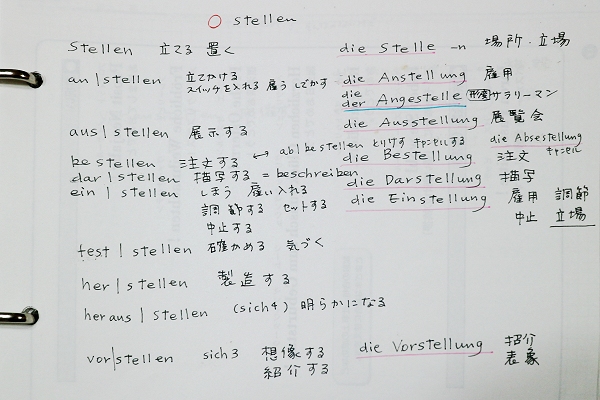 ○ stellen
stellen 立てる 置く die Stelle -n 場所・立場
an|stellen 立てかける die Anstellung 雇用
スイッチを入れる 雇う しでかす
die
der Angestelle 形変 サラリーマン
aus|stellen 展示する die Ausstellung 展覧会
be stellen 注文する ↔ ab|bestellen とりけす キャンセルする die Absestellung キャンセル
die Bestellung 注文
dar|stellen 描写する = beschreiben die Darstellung 描写
ein|stellen しまう 雇い入れる die Einstellung 雇用 調節
調節する セットする 中止 立場
中止する
fest|stellen 確かめる 気づく
her|stellen 製造する
heraus|stellen (sich4) 明らかになる
vor|stellen sich3 想像する die Vorstellung 招介
紹介する 表象